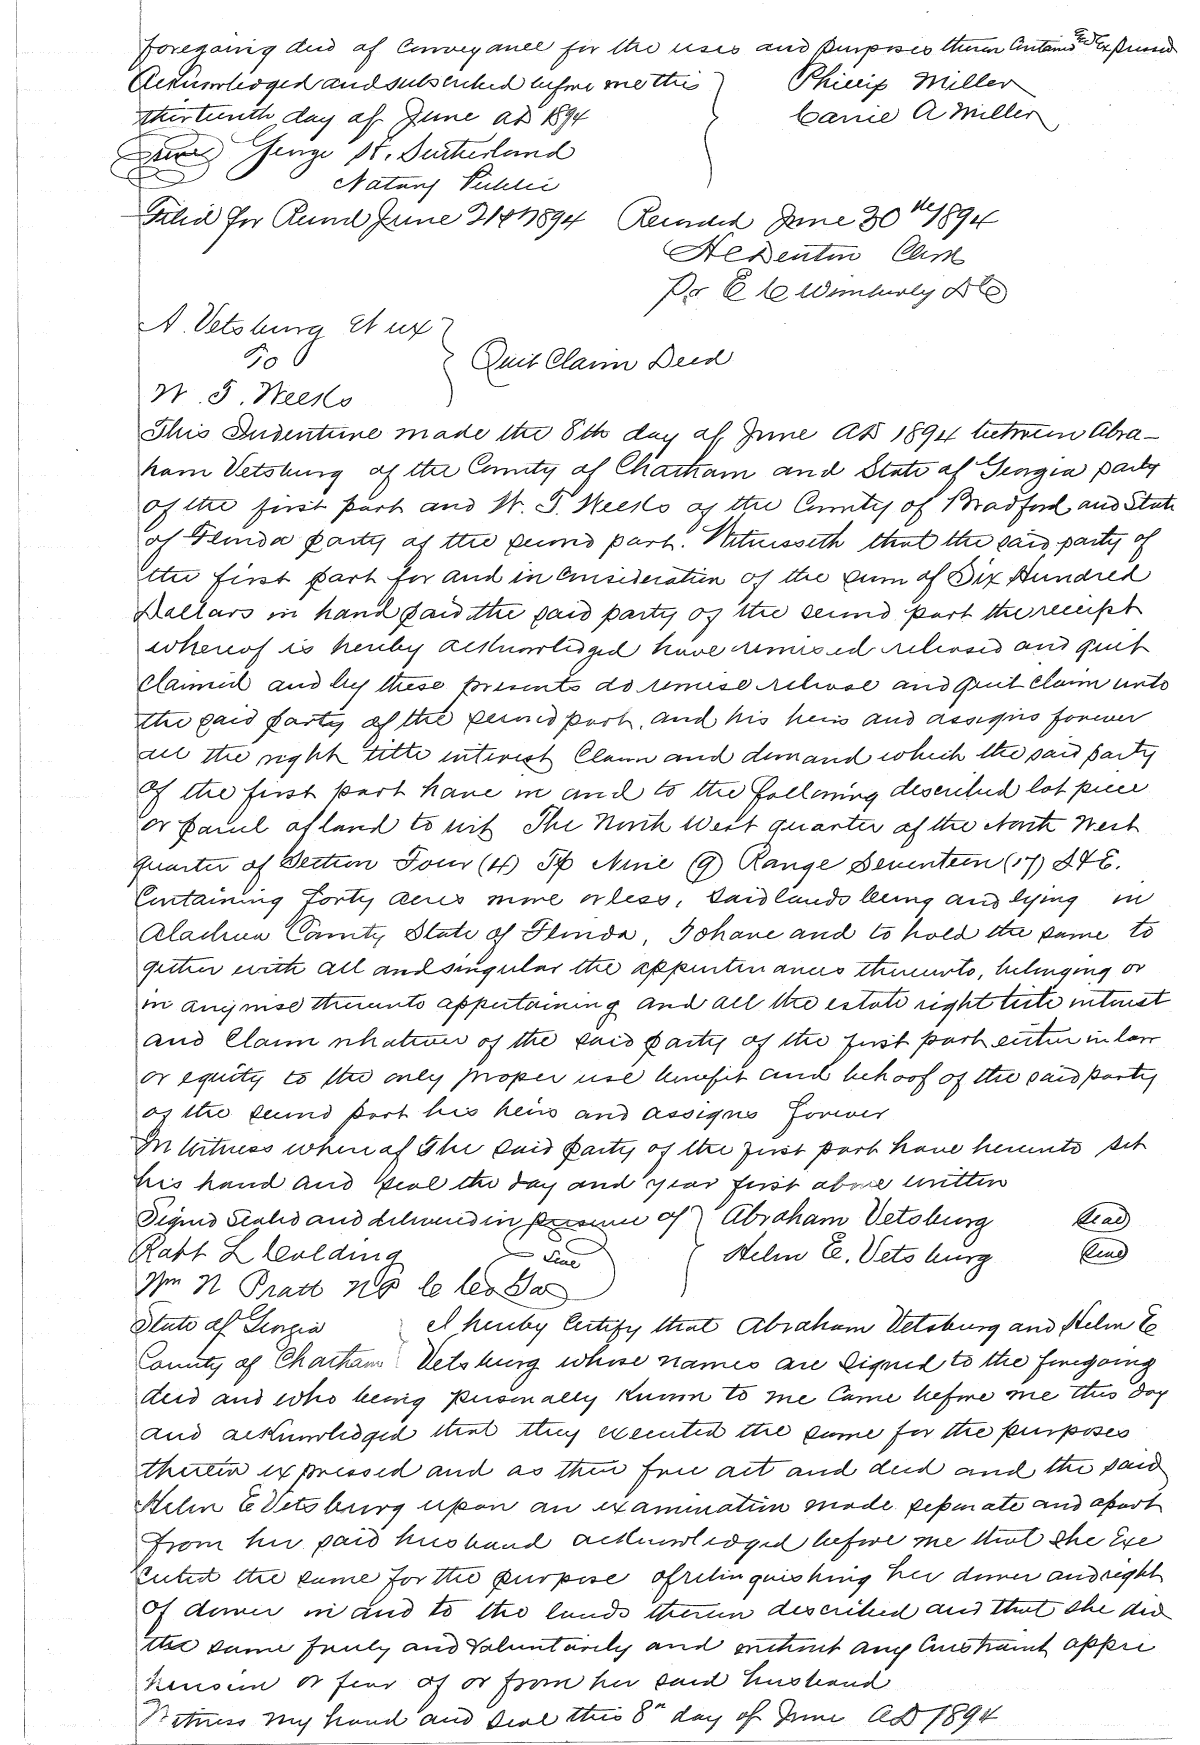 foregoing deed of Conveyance for the uses and purposes therein Contained and expressed
Acknowledged and subscribed before me this } Phillip Miller
thirteenth day of June AD 1894 Carrie A Miller
Seal George W. Sutherland
Notary Public
Filed for Record June 21st 1894 Recorded June 30th 1894
H C Denton Clerk
Pr E C Wimberly DC
A. Vetsburg Et ux }
To } Quit Claim Deed
W. T. Weeks
This Indenture made the 8th day of June AD 1894 between Abra-
ham Vetsburg of the County of Chatham and State of Georgia party
of the first part and W. T. Weeks of the County of Bradford and State
of Florida party of the second part. Witnesseth that the said party of
the first part for and in Consideration of the sum of Six Hundred
Dollars in hand paid the said party of the second part the receipt
whereof is hereby acknowledged have remised released and quit
Claimed and by these presents do remise release and Quit Claim unto
the said party of the second part, and his heirs and assigns forever
all the right title interest Claim and demand which the said party
of the first part have in and to the following described lot piece
or parcel of land to wit The North West quarter of the North West
quarter of Section Four (4) Tp Nine (9) Range Seventeen (17) S & E.
Containing forty acres more or less, said lands being and lying in
Alachua County State of Florida, To have and to hold the same to
gether with all and singular the appurtenances thereunto, belonging or
in anywise thereunto appertaining and all the estate right title interest
and Claim whatever of the said party of the first part either in law
or equity to the only proper use benefit and behoof of the said party
of the second part his heirs and assigns forever
In Witness where of The said party of the first part have hereunto set
his hand and seal the day and year first above written
Signed Sealed and delivered in presence of } Abraham Vetsburg Seal
Robt L Colding Seal } Helen E. Vetsburg Seal
Wm N Pratt NP C Co Ga
State of Georgia } I hereby Certify that Abraham Vetsburg and Helen E
County of Chatham } Vetsburg whose names are signed to the foregoing
deed and who being personally known to me came before me this day
and acknowledged that they executed the same for the purposes
therein expressed and as their free act and deed and the said
Helen E Vetsburg upon an examination made seperate and apart
from her said husband acknowledged before me that she Exe
cuted the same for the purpose of relinquishing her dower and right
of dower in and to the lands therein described and that she did
the same freely and Voluntarily and without any Constraint appre
hension or fear of or from her said husband
Witness my hand and seal this 8th day of June AD 1894